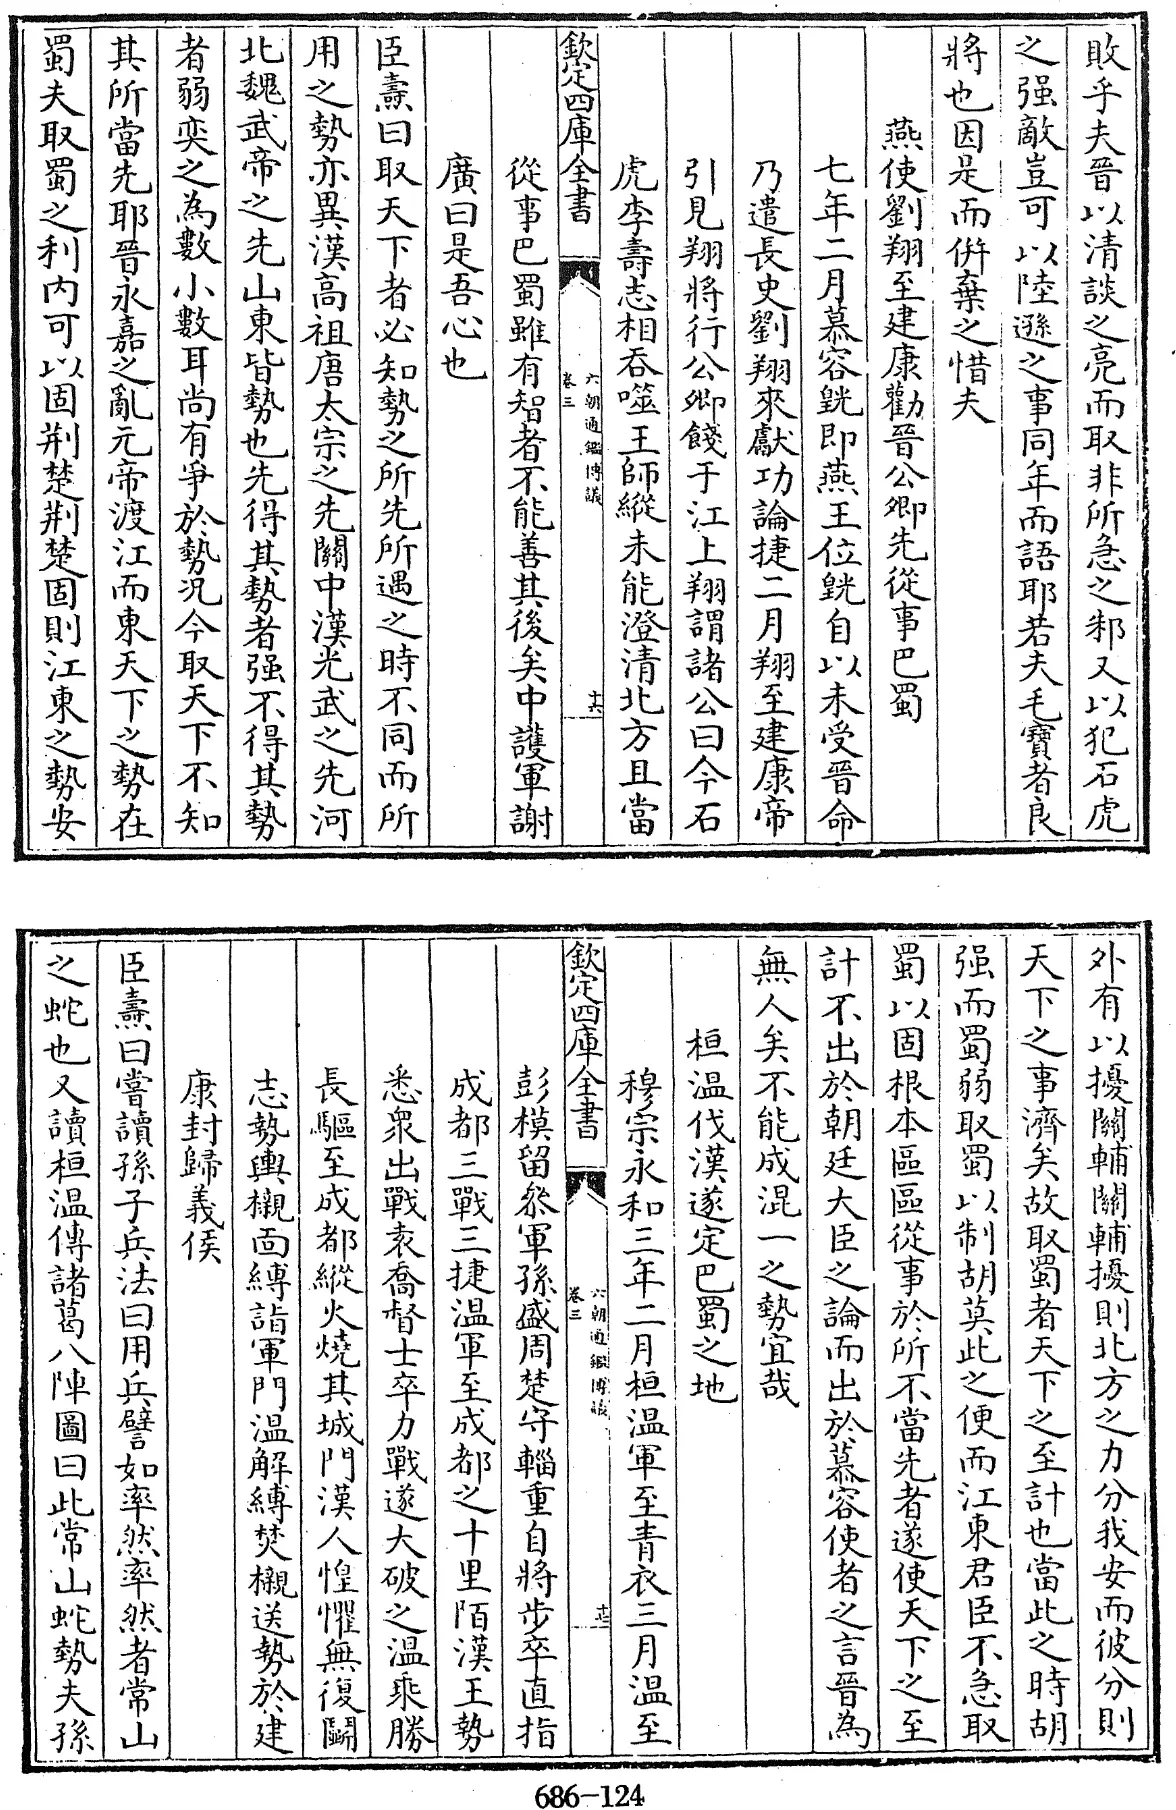 敗乎夫晉以清談之亮而取非所急之邾又以犯石虎
之强敵豈可以陸遜之事同年而語耶若夫毛寶者良
將也因是而併棄之惜夫
燕使劉翔至建康勸晉公卿先從事巴蜀
七年二月慕容皝即燕王位皝自以未受晉命
乃遣長史劉翔來獻功論捷二月翔至建康帝
引見翔將行公卿餞于江上翔謂諸公曰今石
虎李壽志相吞噬王師縱未能澄清北方且當
欽定四庫全書
六朝通鑑博議
卷三
十六
從事巴蜀雖有智者不能善其後矣中護軍謝
廣曰是吾心也
臣燾曰取天下者必知勢之所先所遇之時不同而所
用之勢亦異漢高祖唐太宗之先關中漢光武之先河
北魏武帝之先山東皆勢也先得其勢者强不得其勢
者弱奕之為數小數耳尚有爭於勢况今取天下不知
其所當先耶晉永嘉之亂元帝渡江而東天下之勢在
蜀夫取蜀之利内可以固荆楚荆楚固則江東之勢安
外有以擾關輔關輔擾則北方之力分我安而彼分則
天下之事濟矣故取蜀者天下之至計也當此之時胡
强而蜀弱取蜀以制胡莫此之便而江東君臣不急取
蜀以固根本區區從事於所不當先者遂使天下之至
計不出於朝廷大臣之論而出於慕容使者之言晉為
無人矣不能成混一之勢宜哉
桓温伐漢遂定巴蜀之地
穆宗永和三年二月桓温軍至青衣三月温至
欽定四庫全書
六朝通鑑博議
卷三
十七
彭模留叅軍孫盛周楚守輜重自將步卒直指
成都三戰三捷温軍至成都之十里陌漢王勢
悉衆出戰袁喬督士卒力戰遂大破之温乘勝
長驅至成都縱火燒其城門漢人惶懼無復鬭
志勢輿櫬面縛詣軍門温解縛焚櫬送勢於建
康封歸義侯
臣燾曰嘗讀孫子兵法曰用兵譬如率然率然者常山
之蛇也又讀桓温傳諸葛八陣圖曰此常山蛇勢夫孫
686-124